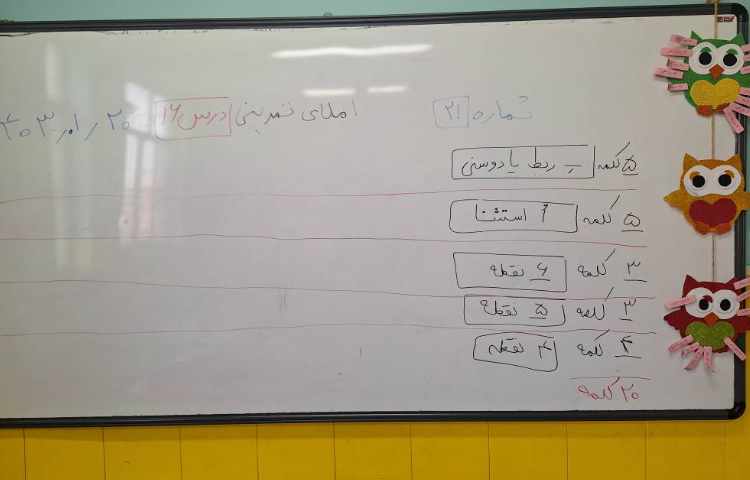 شماره ۲۱ املای تمرینی درس ۱۶ ۲۰ ر امر ۴۰۳
۵ کلمه ـِ ربط یا دوستی
۵ کلمه أ استثنا
۳ کلمه ۶ نقطه
۳ کلمه ۵ نقطه
۴ کلمه ۴ نقطه
۲۰ کلمه